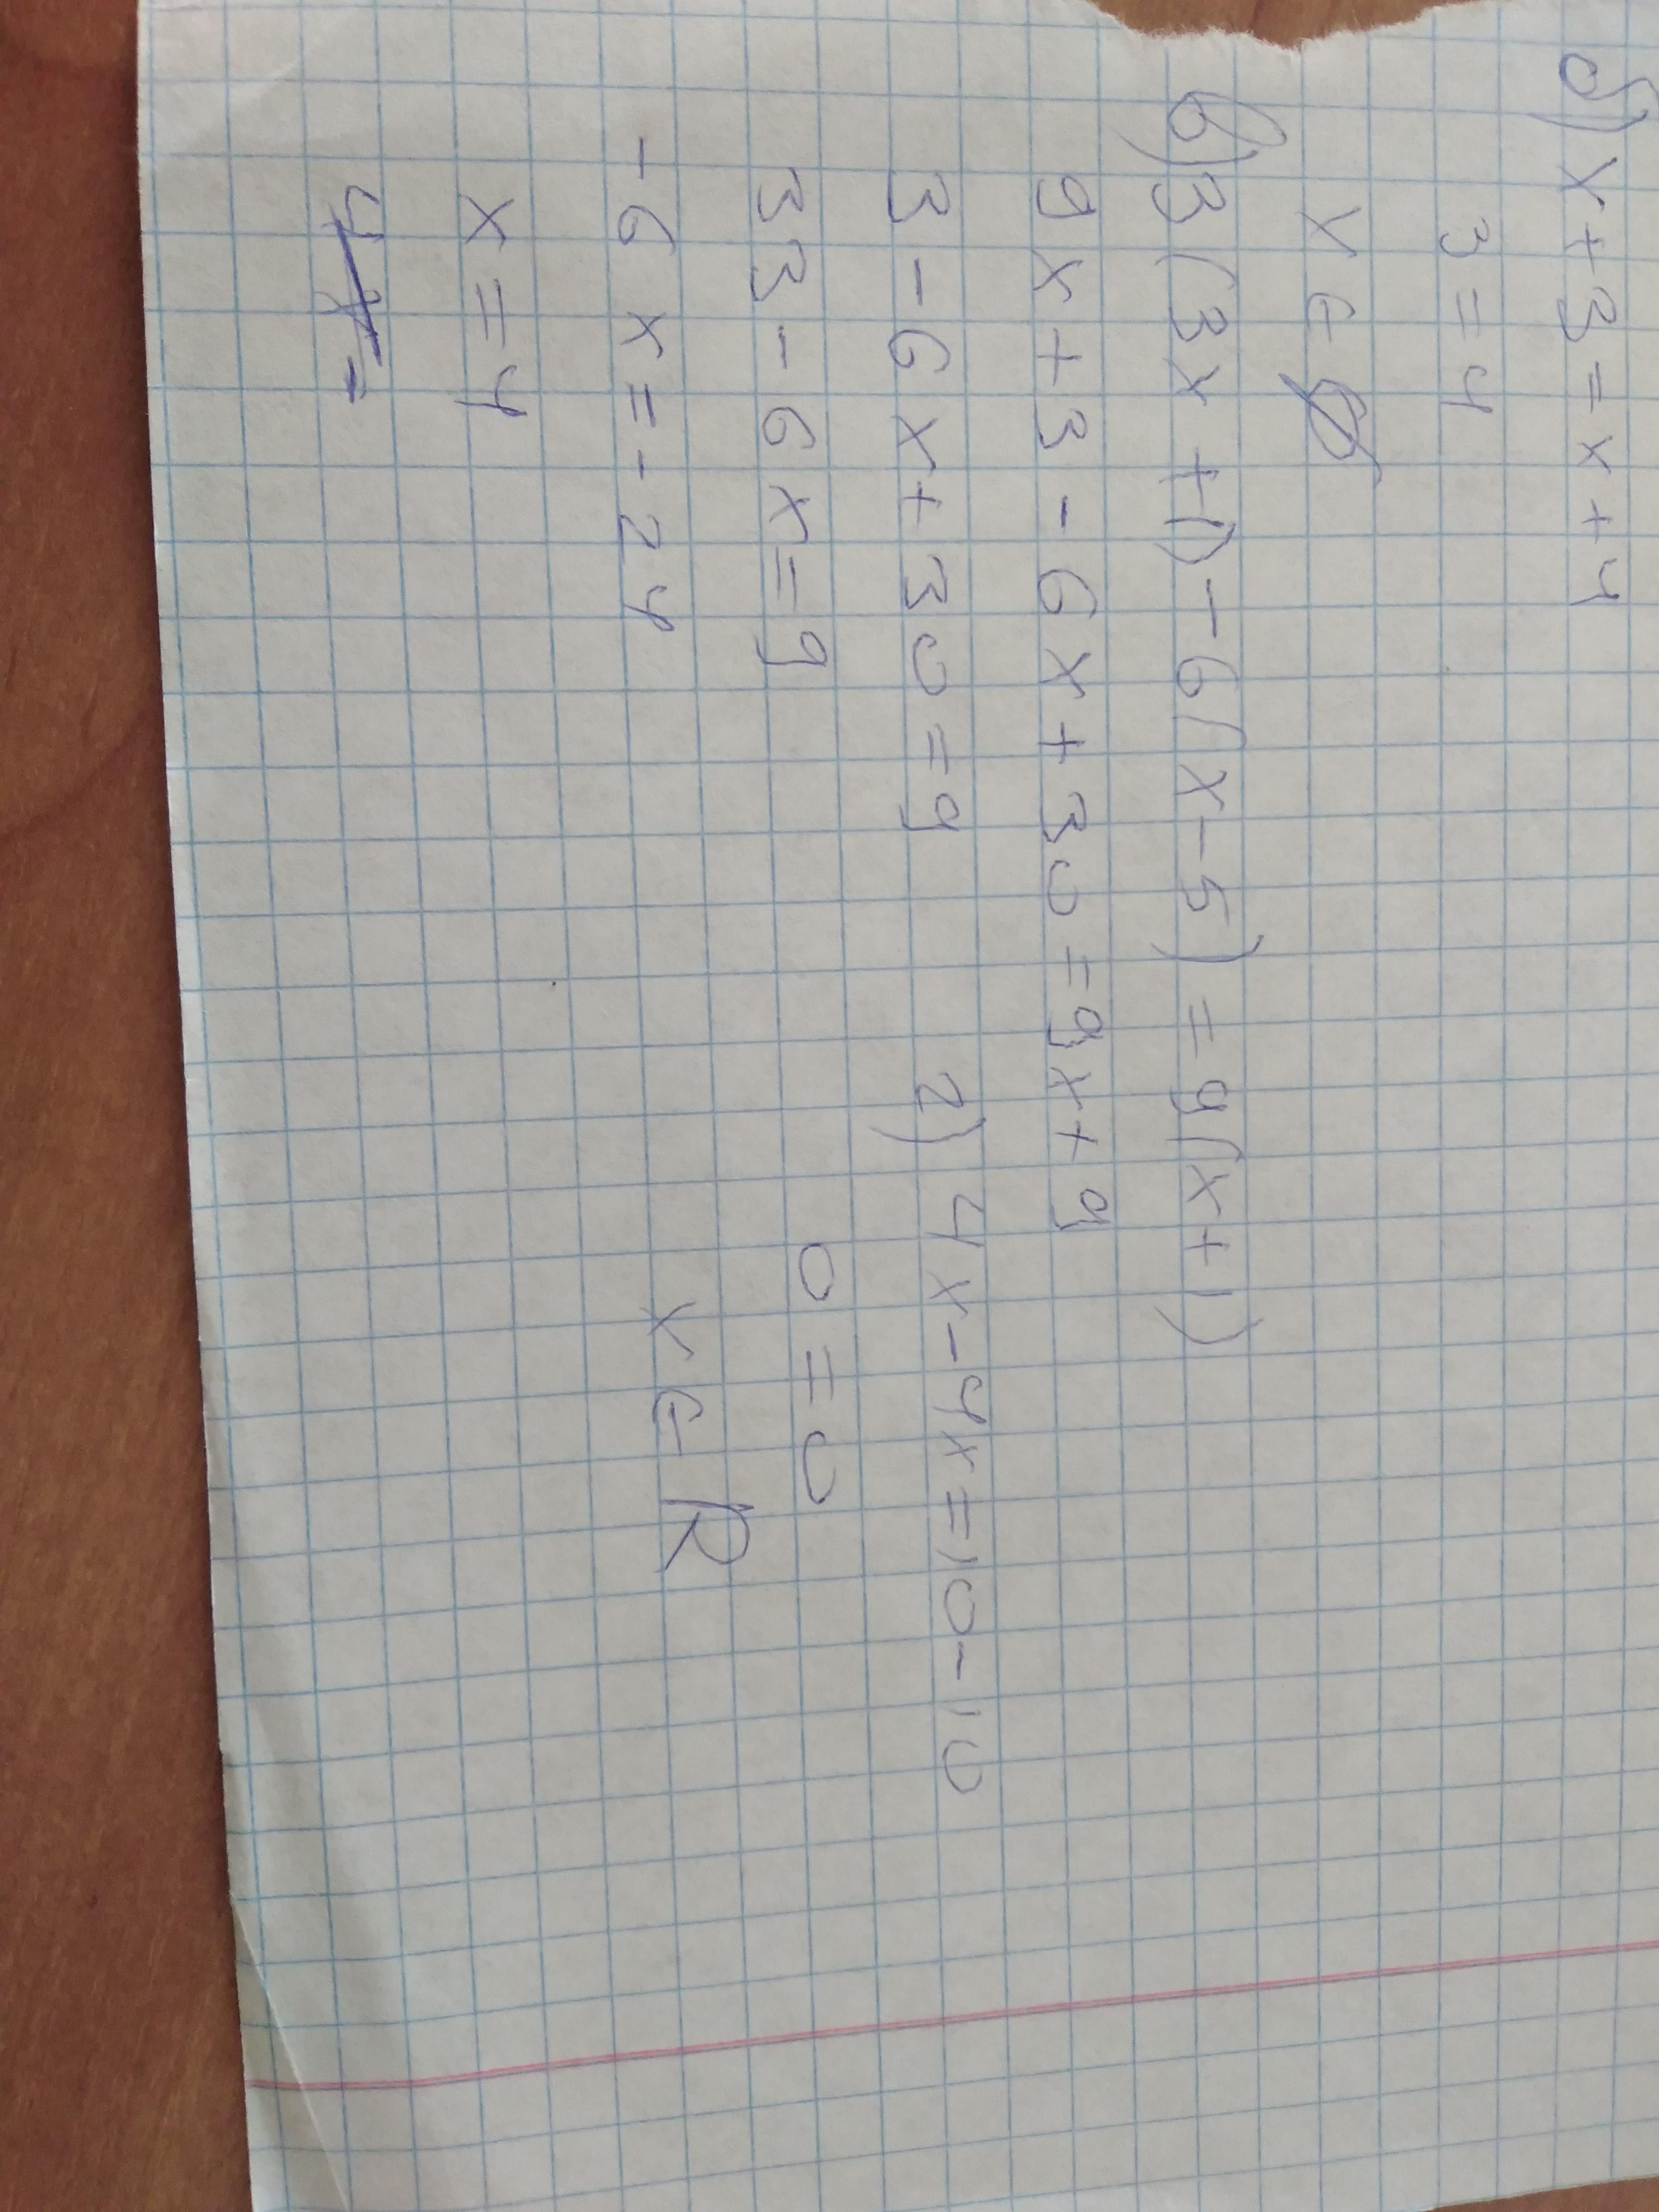 б) x + 3 = x + 4
3 = 4
x ∈ ∅
в) 3(3x + 1) - 6(x - 5) = 9(x + 1)
9x + 3 - 6x + 30 = 9x + 9
3 - 6x + 30 = 9
33 - 6x = 9
- 6x = - 24
x = 4
2) 4x - 4x = 10 - 10
0 = 0
x ∈ R